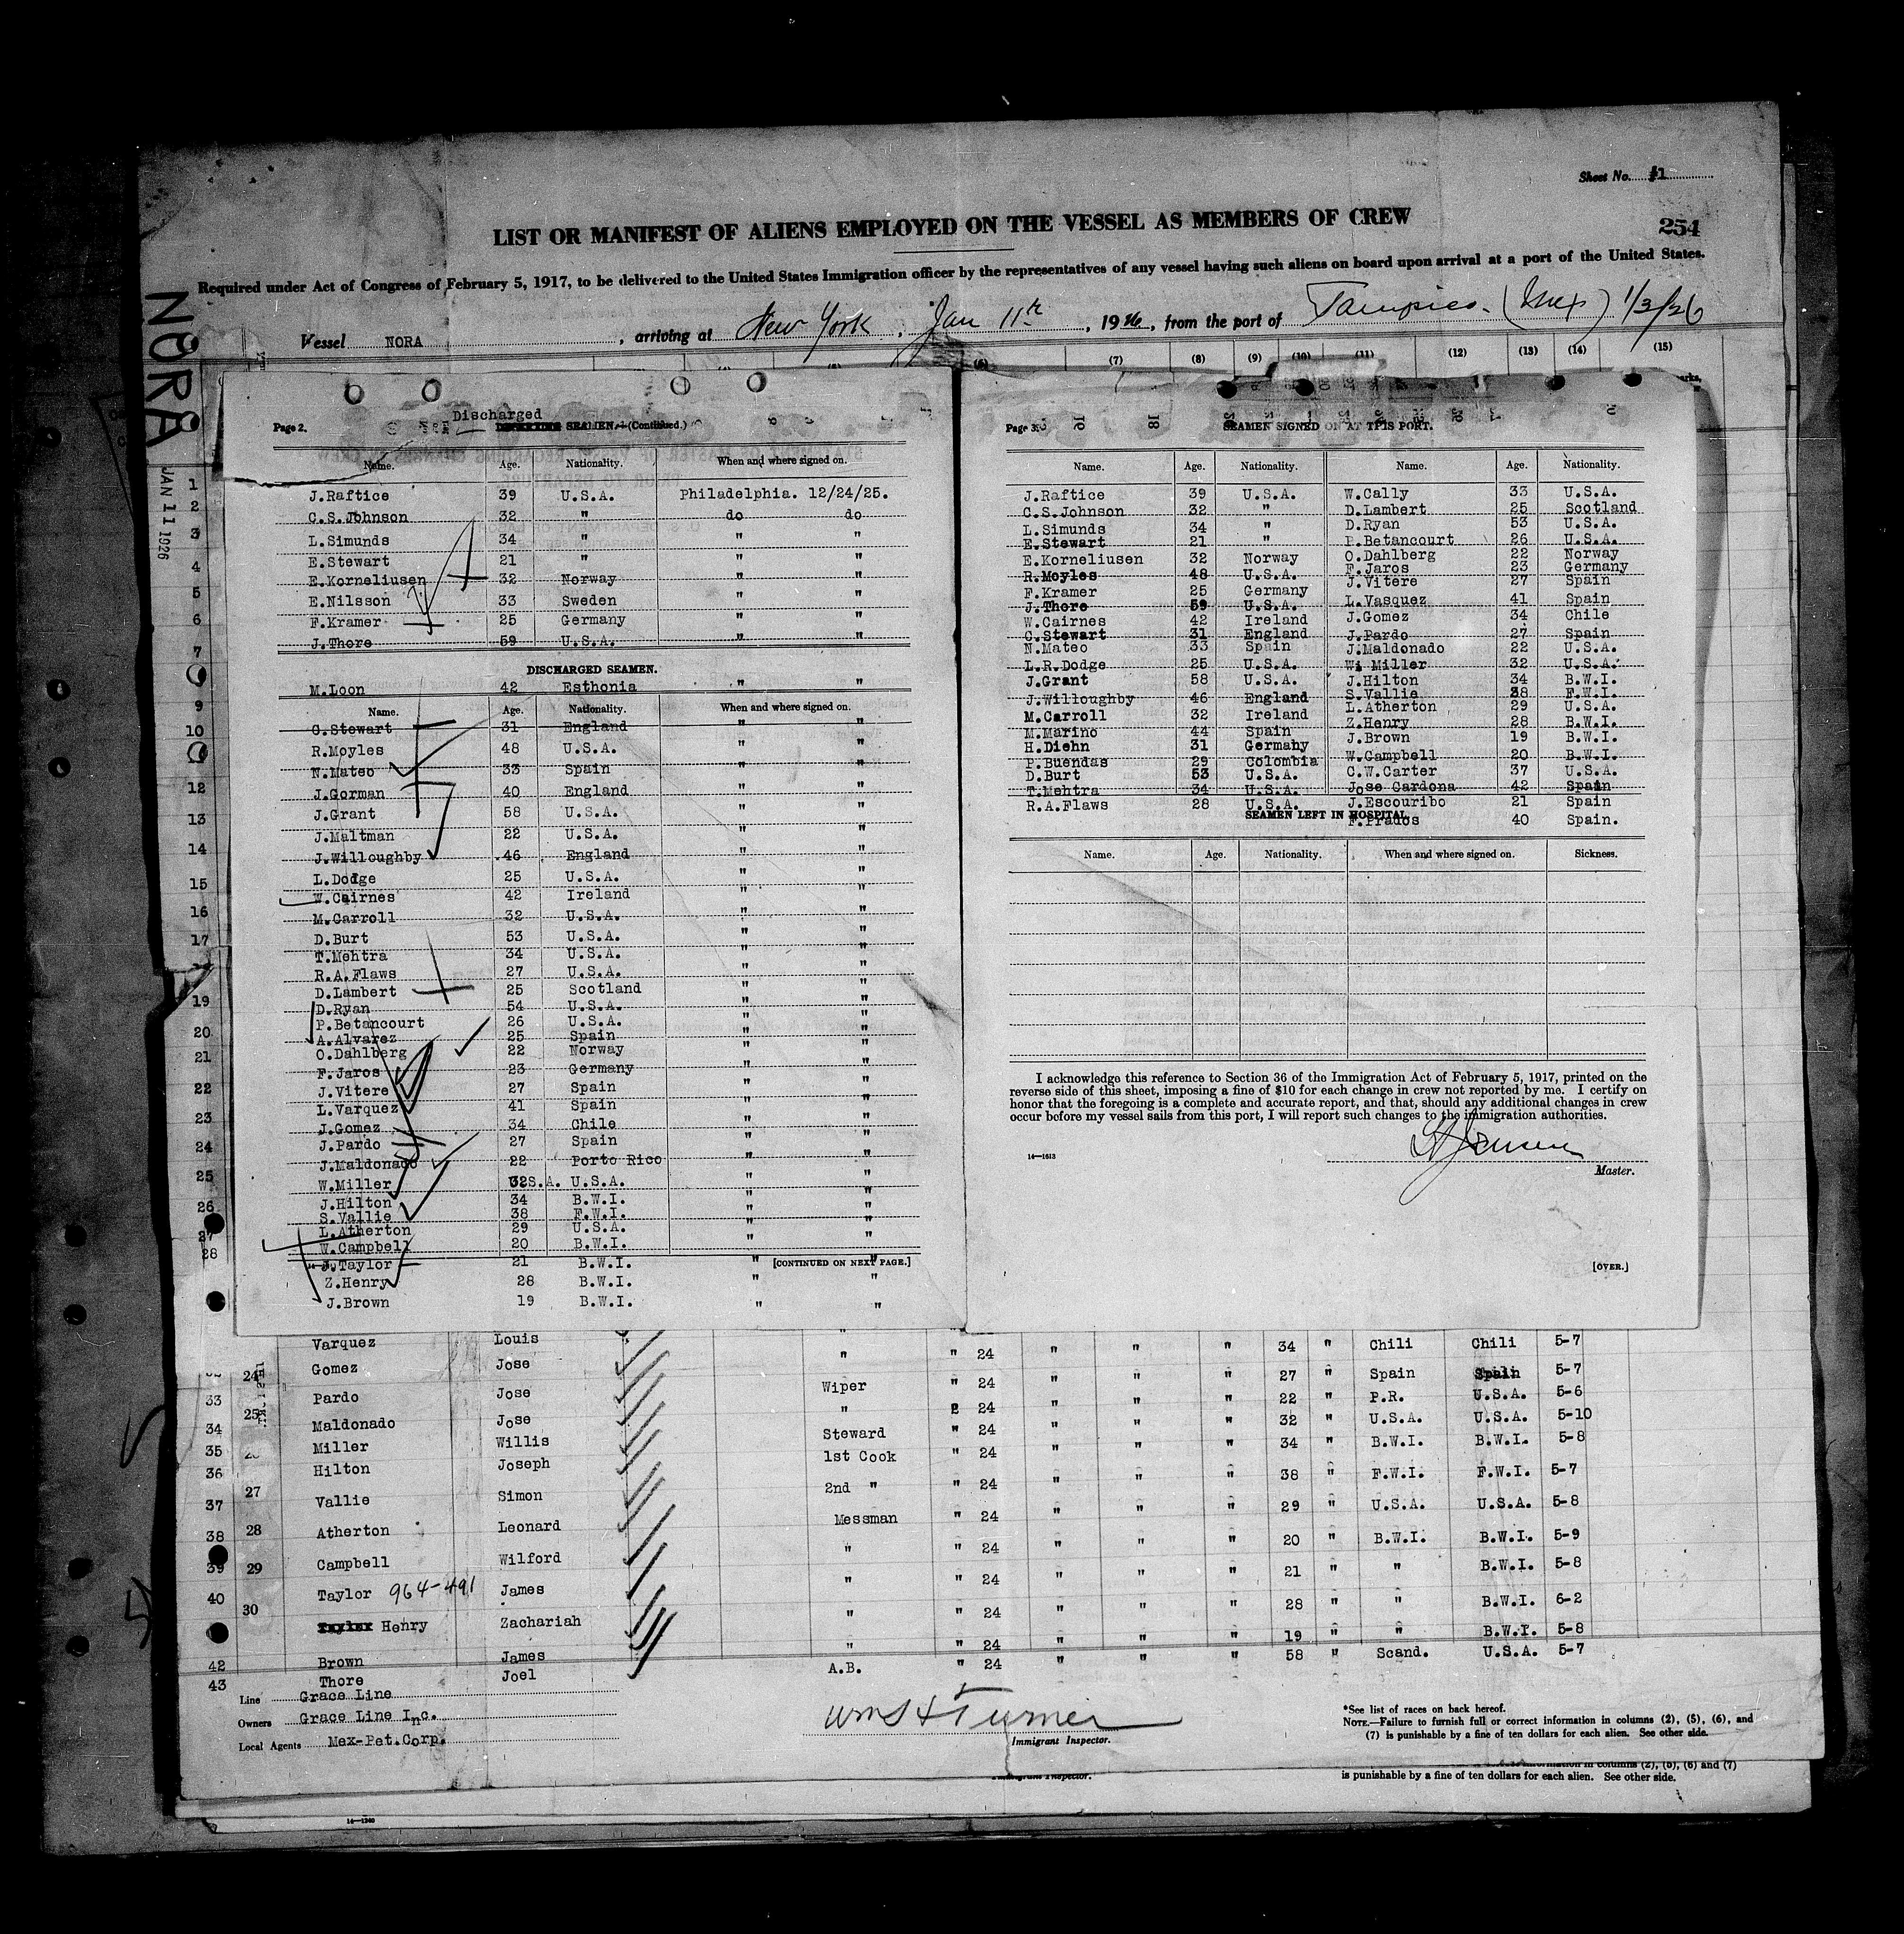 Sheet No. 1
LIST OR MANIFEST OF ALIENS EMPLOYED ON THE VESSEL AS MEMBERS OF CREW
254
Required under Act of Congress of February 5, 1917, to be delivered to the United States Immigration officer by the representatives of any vessel having such aliens on board upon arrival at a port of the United States.
Vessel NORA, arriving at New York, Jan 11th, 1926, from the port of Tampico. (Mex) 1/3/26
NORA
JAN 11 1926
(7) (8) (9) (10) (11) (12) (13) (14) (15)
Discharged
Page 2. DEPARTING SEAMEN.—(Continued.)
Name. Age. Nationality. When and where signed on.
J.Raftice 39 U.S.A. Philadelphia. 12/24/25.
C.S.Johnson 32 " do do
L.Simunds 34 " " "
E.Stewart 21 " " "
E.Korneliusen 32 Norway " "
E.Nilsson 33 Sweden " "
F.Kramer 25 Germany " "
J.Thore 59 U.S.A. " "
DISCHARGED SEAMEN.
M.Loon 42 Esthonia " "
Name. Age. Nationality. When and where signed on.
C.Stewart 31 England " "
R.Moyles 48 U.S.A. " "
N.Mateo 33 Spain " "
J.Gorman 40 England " "
J.Grant 58 U.S.A. " "
J.Maltman 22 U.S.A. " "
J.Willoughby 46 England " "
L.Dodge 25 U.S.A. " "
W.Cairnes 42 Ireland " "
M.Carroll 32 U.S.A. " "
D.Burt 53 U.S.A. " "
T.Mehtra 34 U.S.A. " "
R.A.Flaws 27 U.S.A. " "
D.Lambert 25 Scotland " "
D.Ryan 54 U.S.A. " "
P.Betancourt 26 U.S.A. " "
A.Alvarez 25 Spain " "
O.Dahlberg 22 Norway " "
F.Jaros 23 Germany " "
J.Vitere 27 Spain " "
L.Varquez 41 Spain " "
J.Gomez 34 Chile " "
J.Pardo 27 Spain " "
J.Maldonado 22 Porto Rico " "
W.Miller 32 U.S.A. " "
J.Hilton 34 B.W.I. " "
S.Vallie 38 F.W.I. " "
L.Atherton 29 U.S.A. " "
W.Campbell 20 B.W.I. " "
J.Taylor 21 B.W.I. " "
[CONTINUED ON NEXT PAGE.]
Z.Henry 28 B.W.I. " "
J.Brown 19 B.W.I. " "
Page 3. SEAMEN SIGNED ON AT THIS PORT.
Name. Age. Nationality. Name. Age. Nationality.
J.Raftice 39 U.S.A. W.Cally 33 U.S.A.
C.S.Johnson 32 " D.Lambert 25 Scotland
L.Simunds 34 " D.Ryan 53 U.S.A.
E.Stewart 21 " P.Betancourt 26 U.S.A.
E.Korneliusen 32 Norway O.Dahlberg 22 Norway
R.Moyles 48 U.S.A. F.Jaros 23 Germany
F.Kramer 25 Germany J.Vitere 27 Spain
J.Thore 59 U.S.A. L.Vasquez 41 Spain
W.Cairnes 42 Ireland J.Gomez 34 Chile
C.Stewart 31 England J.Pardo 27 Spain
N.Mateo 33 Spain J.Maldonado 22 U.S.A.
L.R.Dodge 25 U.S.A. W. Miller 32 U.S.A.
J.Grant 58 U.S.A. J.Hilton 34 B.W.I.
J.Willoughby 46 England S.Vallie 38 F.W.I.
M.Carroll 32 Ireland L.Atherton 29 U.S.A.
M.Marino 44 Spain Z.Henry 28 B.W.I.
H.Diehn 31 Germany J.Brown 19 B.W.I.
P.Buendas 29 Colombia W.Campbell 20 B.W.I.
D.Burt 53 U.S.A. C.W.Carter 37 U.S.A.
T.Mehtra 34 U.S.A. Jose Cardona 42 Spain
R.A.Flaws 28 U.S.A. J.Escouribo 21 Spain
F.Prados 40 Spain.
SEAMEN LEFT IN HOSPITAL
Name. Age. Nationality. When and where signed on. Sickness.
I acknowledge this reference to Section 36 of the Immigration Act of February 5, 1917, printed on the
reverse side of this sheet, imposing a fine of $10 for each change in crew not reported by me. I certify on
honor that the foregoing is a complete and accurate report, and that, should any additional changes in crew
occur before my vessel sails from this port, I will report such changes to the immigration authorities.
14—1613
Master.
[OVER.]
Varquez Louis "
Gomez Jose " " 24 " " " 34 " Chili Chili 5-7
Pardo Jose Wiper " 24 " " " 27 " Spain Spain 5-7
Maldonado Jose " 24 " " " 22 " P.R. U.S.A. 5-6
Miller Willis Steward " 24 " " " 32 " U.S.A. U.S.A. 5-10
Hilton Joseph 1st Cook " 24 " " " 34 " B.W.I. B.W.I. 5-8
Vallie Simon 2nd " " 24 " " " 38 " F.W.I. F.W.I. 5-7
Atherton Leonard Messman " 24 " " " 29 " U.S.A. U.S.A. 5-8
Campbell Wilford " " 24 " " " 20 " B.W.I. B.W.I. 5-9
Taylor 964-491 James " " 24 " " " 21 " " B.W.I. 5-8
Henry Zachariah " " 24 " " " 28 " " B.W.I. 6-2
Brown James " " 24 " " " 19 " " B.W.I. 5-8
Thore Joel A.B. " 24 " " " 58 " Scand. U.S.A. 5-7
Line Grace Line
Owners Grace Line Inc.
Local Agents Mex-Pet.Corp.
Wm S H Turner
Immigrant Inspector.
*See list of races on back hereof.
NOTE.—Failure to furnish full or correct information in columns (2), (5), (6), and
(7) is punishable by a fine of ten dollars for each alien. See other side.
Immigrant Inspector.
information in columns (2), (5), (6) and (7)
is punishable by a fine of ten dollars for each alien. See other side.
14—1240